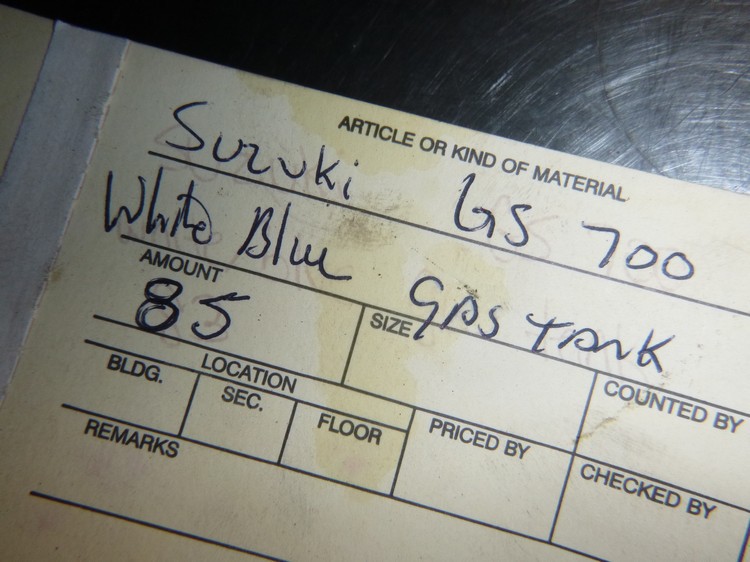 ARTICLE OR KIND OF MATERIAL
Suzuki GS 700
White Blue GAS TANK
AMOUNT
85
SIZE
COUNTED BY
LOCATION
BLDG.
SEC.
FLOOR
PRICED BY
CHECKED BY
REMARKS